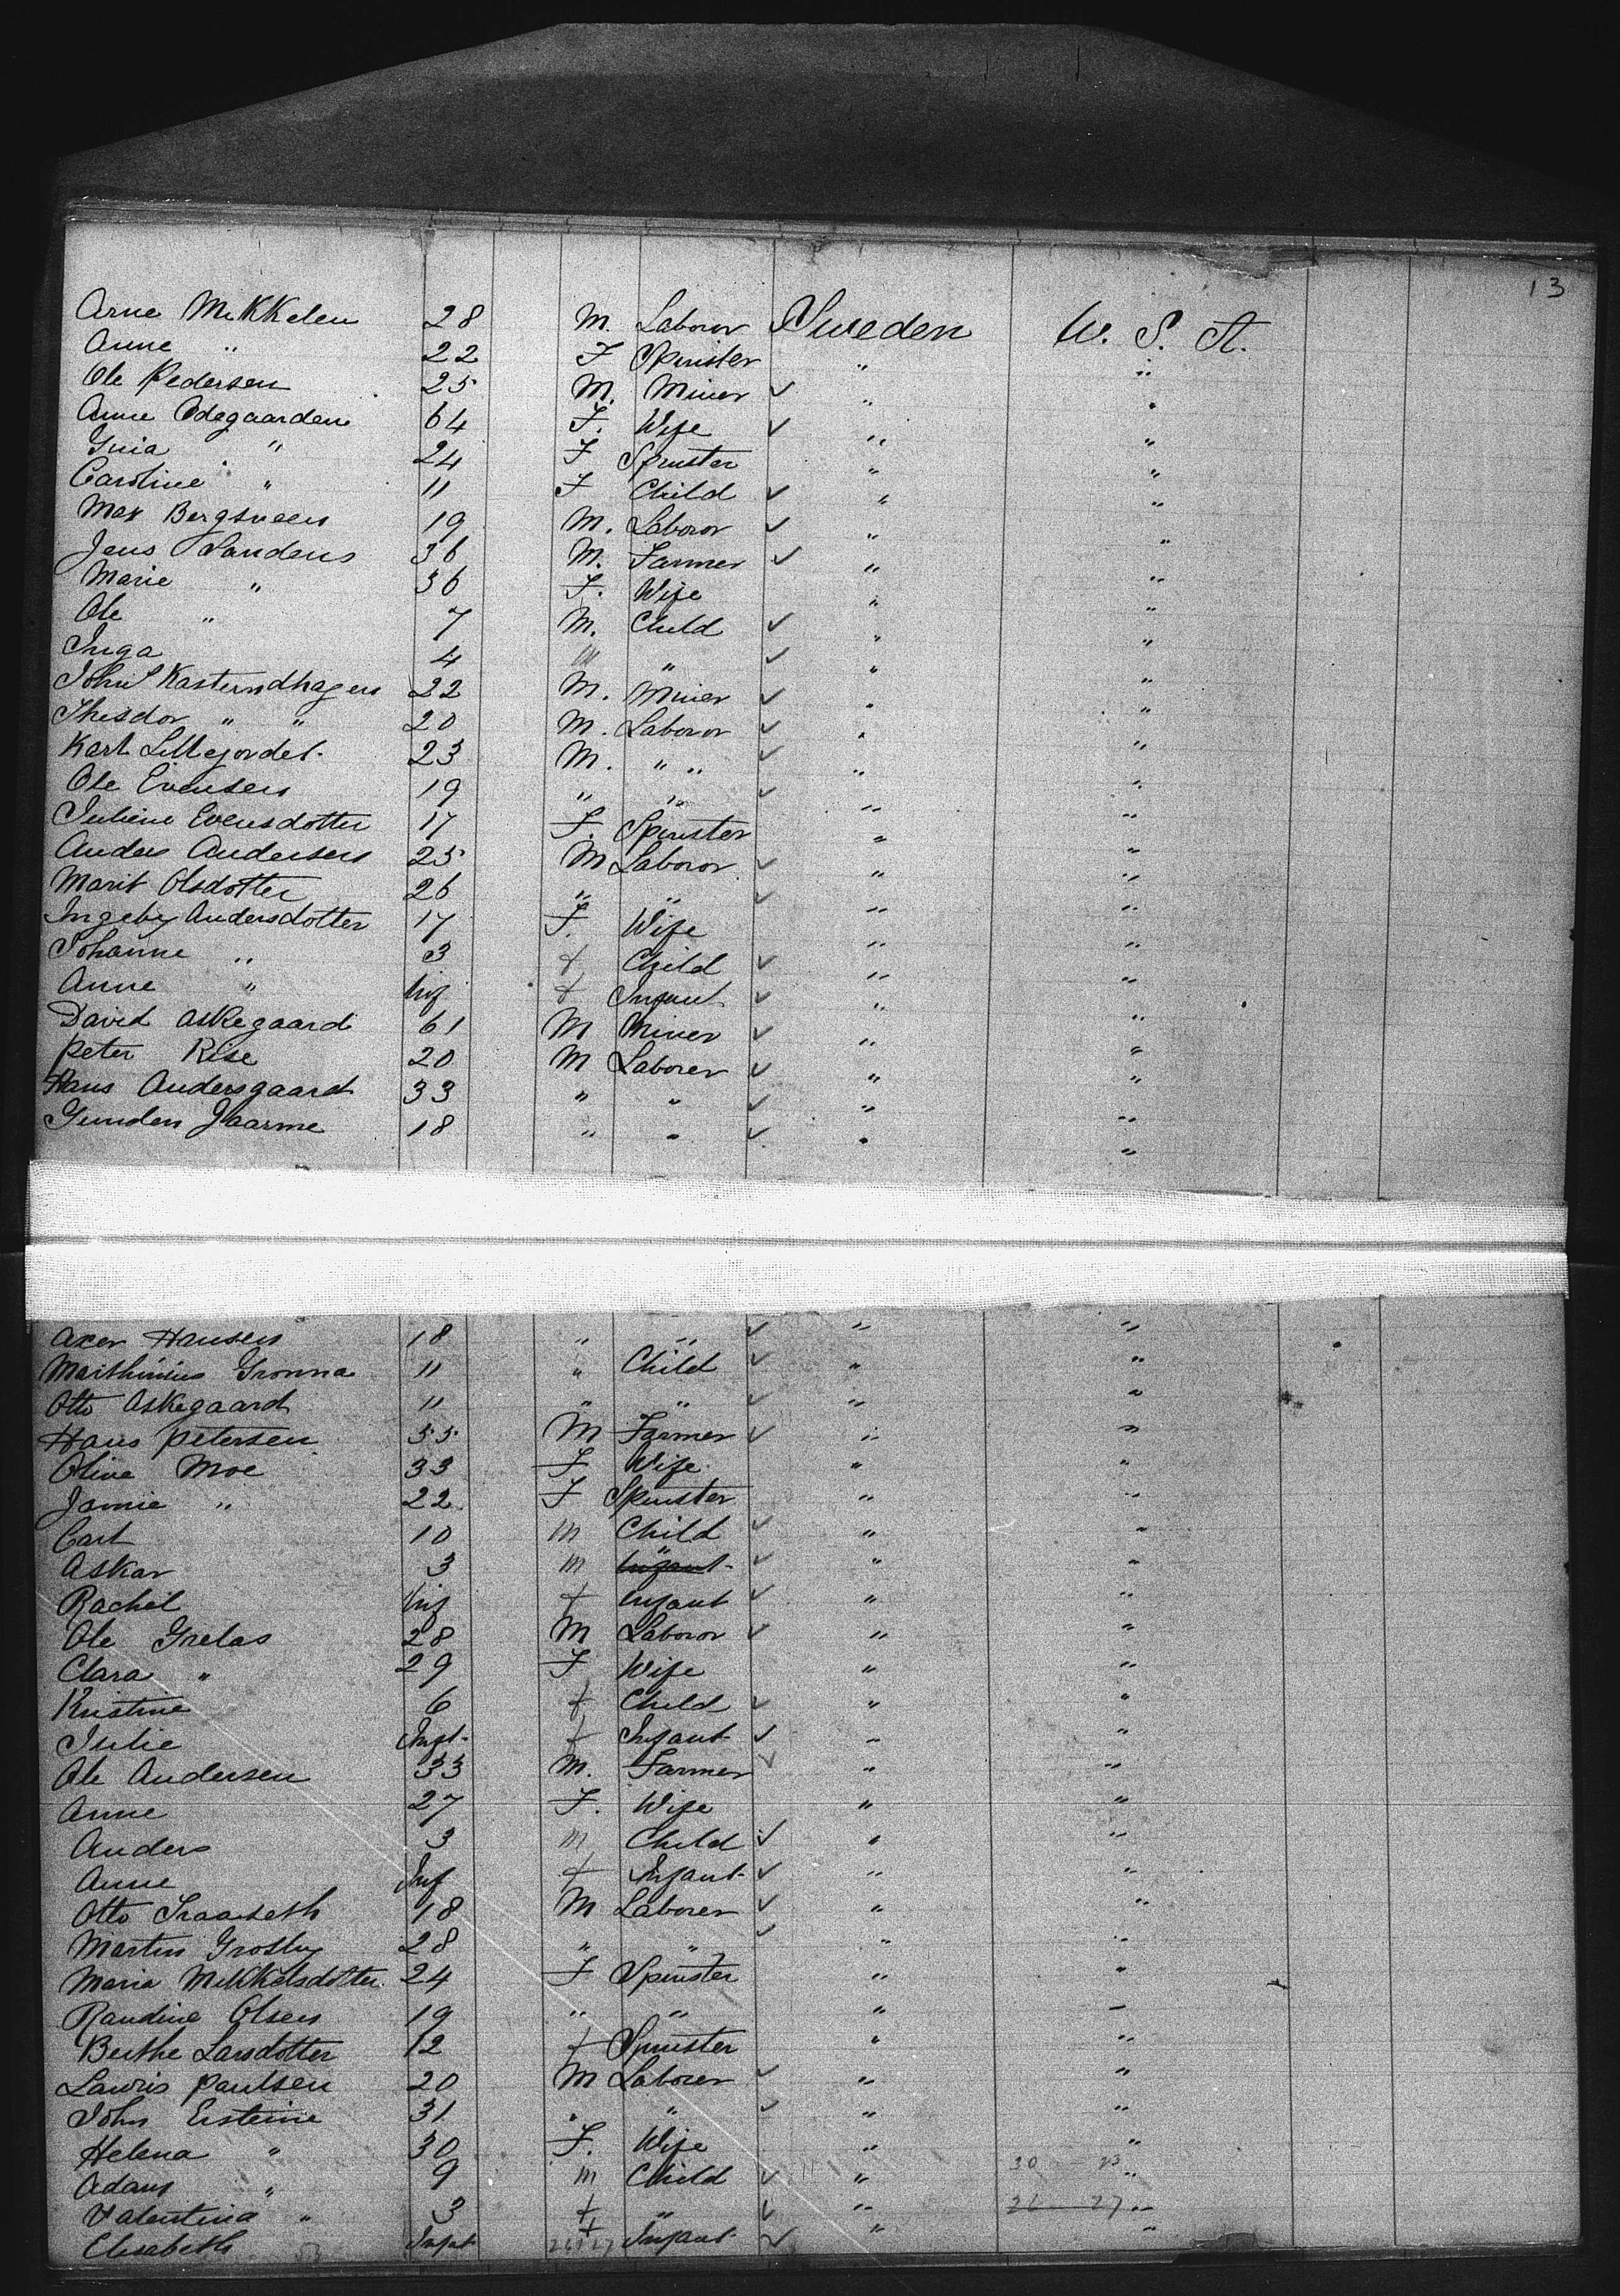 13
Arne Mikkelen 28 M. Laboror Sweden U. S. A.
Anne " 22 F Spinster " "
Ole Pedersen 25 M. Miner ✓ " "
Anne Odegaarden 64 F. Wife ✓ " "
Guia " 24 F Spinster " "
Caroline " 11 F Child ✓ " "
Max Bergsveen 19 M. Laboror ✓ " "
Jens Sandens 36 M. Farmer ✓ " "
Marie " 36 F. Wife " "
Ole " 7 M. Child ✓ " "
Inga 4 M " ✓ " "
John Kasterndhagen 22 M. Miner ✓ " "
Thedor " " 20 M. Laboror ✓ " "
Karl Lillegordet 23 M. " " ✓ " "
Ole Evensen 19 " " ✓ " "
Juline Evensdotter 17 F. Spinster " "
Anders Andersen 25 M Laboror ✓ " "
Marit Olsdotter 26 " " ✓ " "
Ingeby Andersdotter 17 F. Wife " "
Johanne " 3 f Child ✓ " "
Anne " Inf f Infant ✓ " "
David Askegaard 61 M Miner ✓ " "
Peter Rise 20 M Laborer ✓ " "
Hans Andersgaard 33 " " ✓ " "
Gunden Jaarme 18 " " ✓ " "
Axer Hansen 18 " " ✓ " "
Marthinius Gronna 11 " Child ✓ " "
Otto Askegaard 11 " " ✓ " "
Hans Petersen 55 M Farmer ✓ " "
Oline Moe 33 F Wife " "
Jamie " 22 F Spinster " "
Carl 10 M Child ✓ " "
Askar 3 M " Infant ✓ " "
Rachel Inf f Infant ✓ " "
Ole Grelas 28 M Laboror ✓ " "
Clara " 29 F Wife " "
Kristine 6 f Child ✓ " "
Julie Inft f Infant ✓ " "
Ole Andersen 33 M. Farmer ✓ " "
Anne 27 F. Wife " "
Anders 3 M Child ✓ " "
Anne Inf f Infant ✓ " "
Otto Traaseth 18 M Laborer ✓ " "
Martin Grosby 28 " " ✓ " "
Maria Mikkelsdotter 24 F Spinster " "
Randine Olsen 19 " " " "
Berthe Larsdotter 12 f Spinster " "
Lauris Paulsen 20 M Laborer ✓ " "
John Ersteine 31 " " ✓ " "
Helena " 30 F. Wife " "
Adam " 9 M Child ✓ " 30 23 "
Valentina " 3 f " ✓ " 26 27 "
Elisabeth Infat 26 27 f Infant ✓ " "